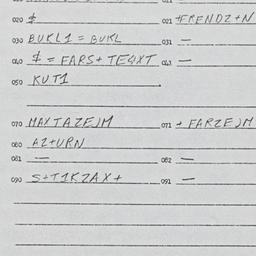 020 $ 021 #FRENDZ+N
030 BUKL1 = BUKL 031 —
040 $ = FARS+ TE4XT 043 —
050 KUT1
070 MAXTAZEJM 071 + FARZEJM
080 AZ+URN
081 — 082 —
090 S+T1KZAX+ 091 —